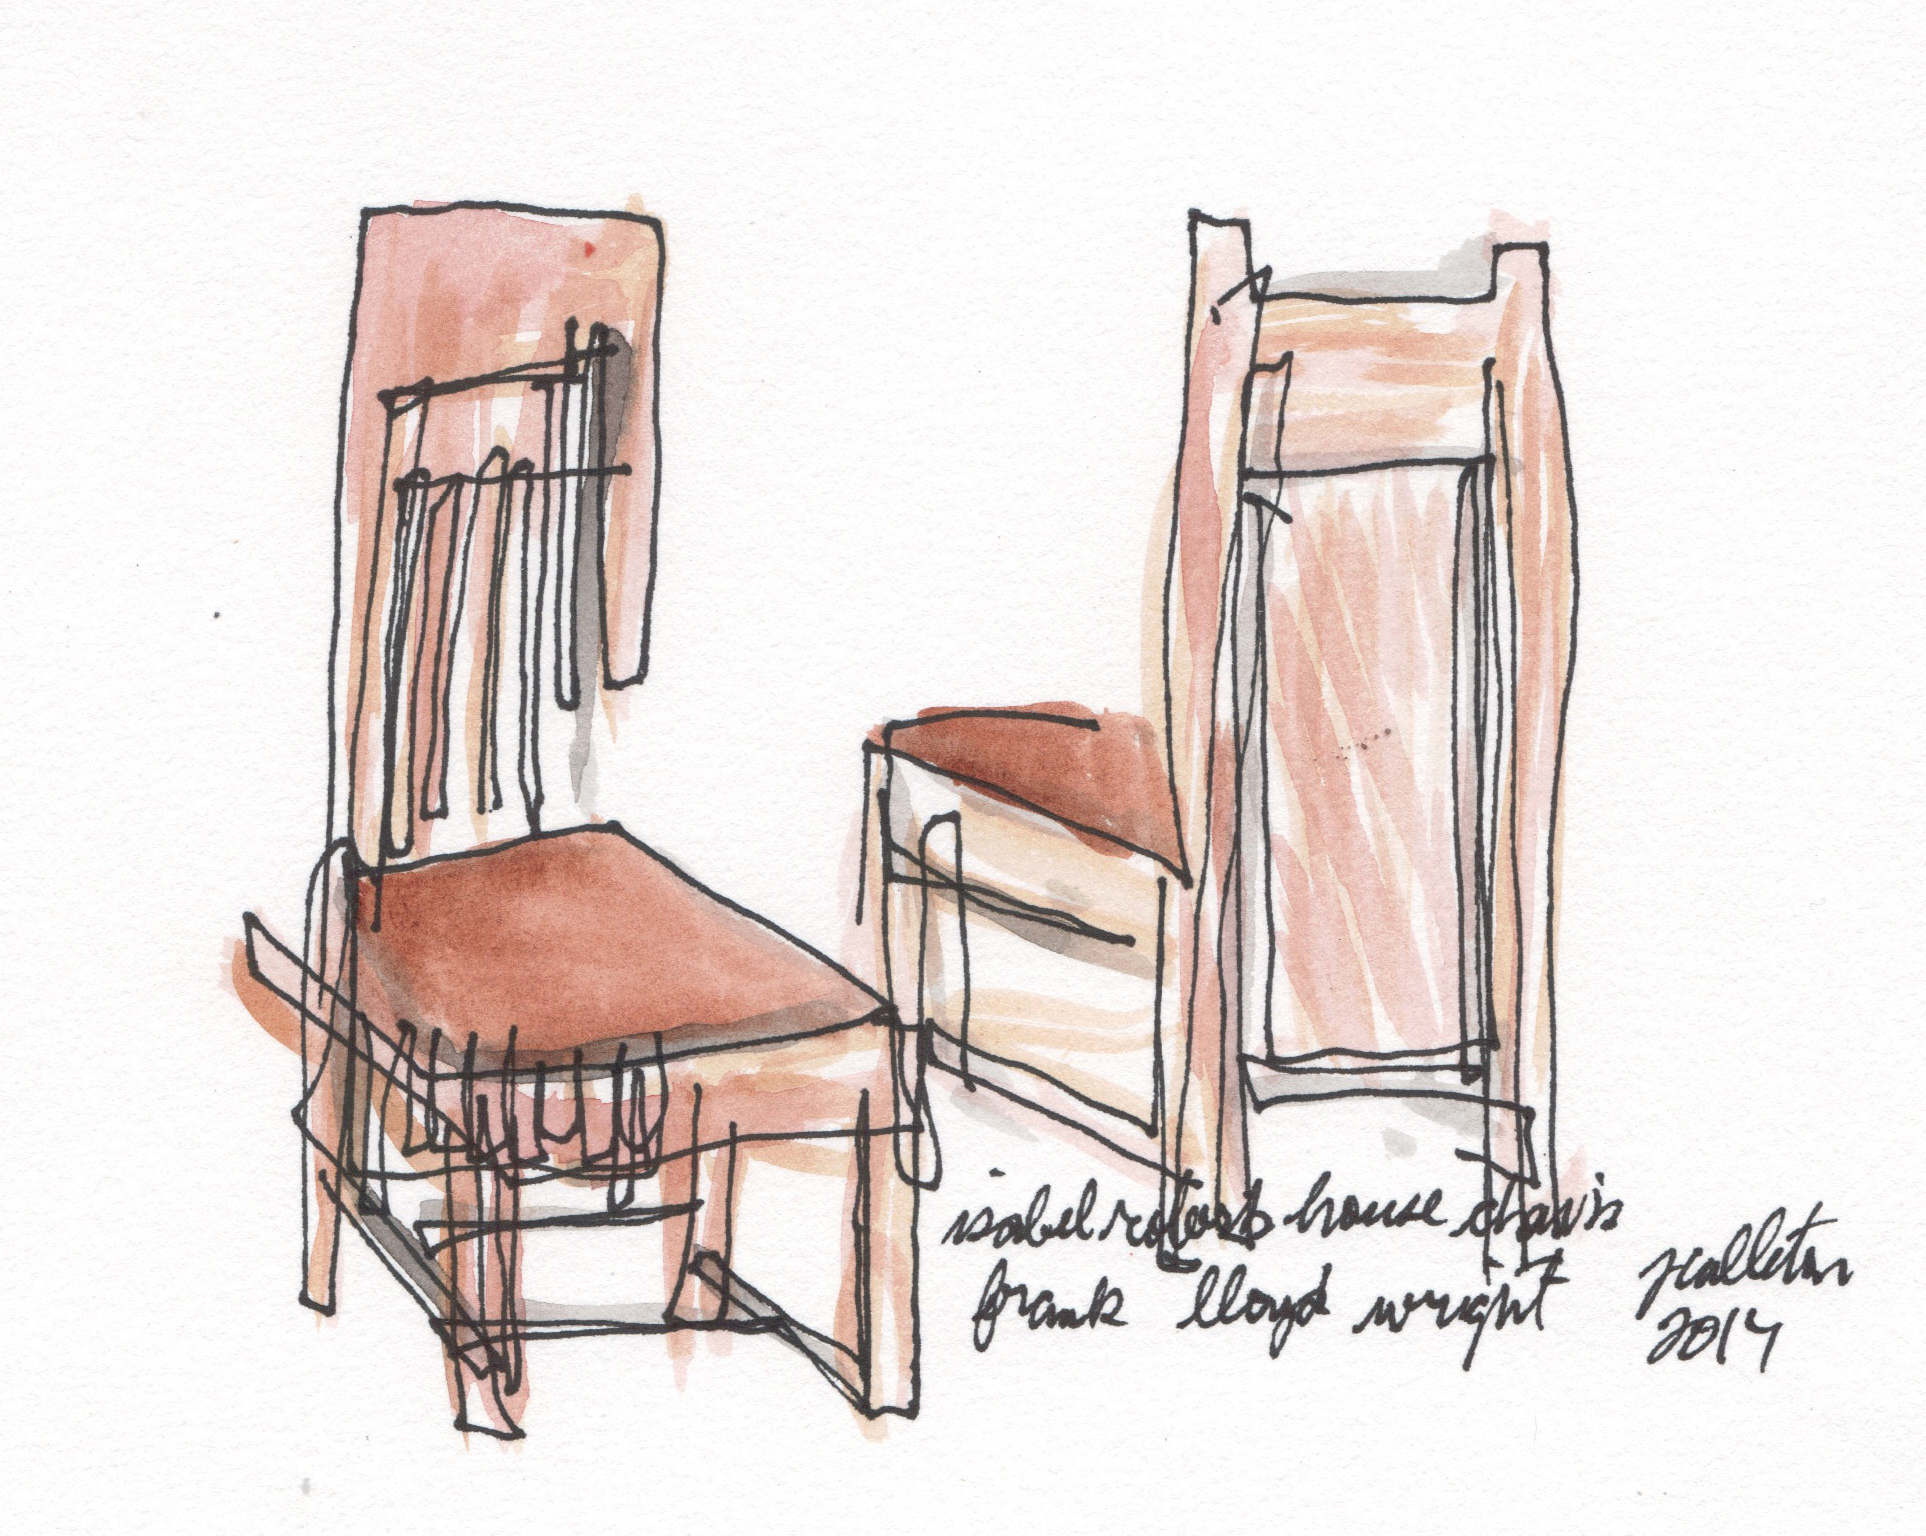 isabel roberts house chairs
frank lloyd wright
jcalleton
2014